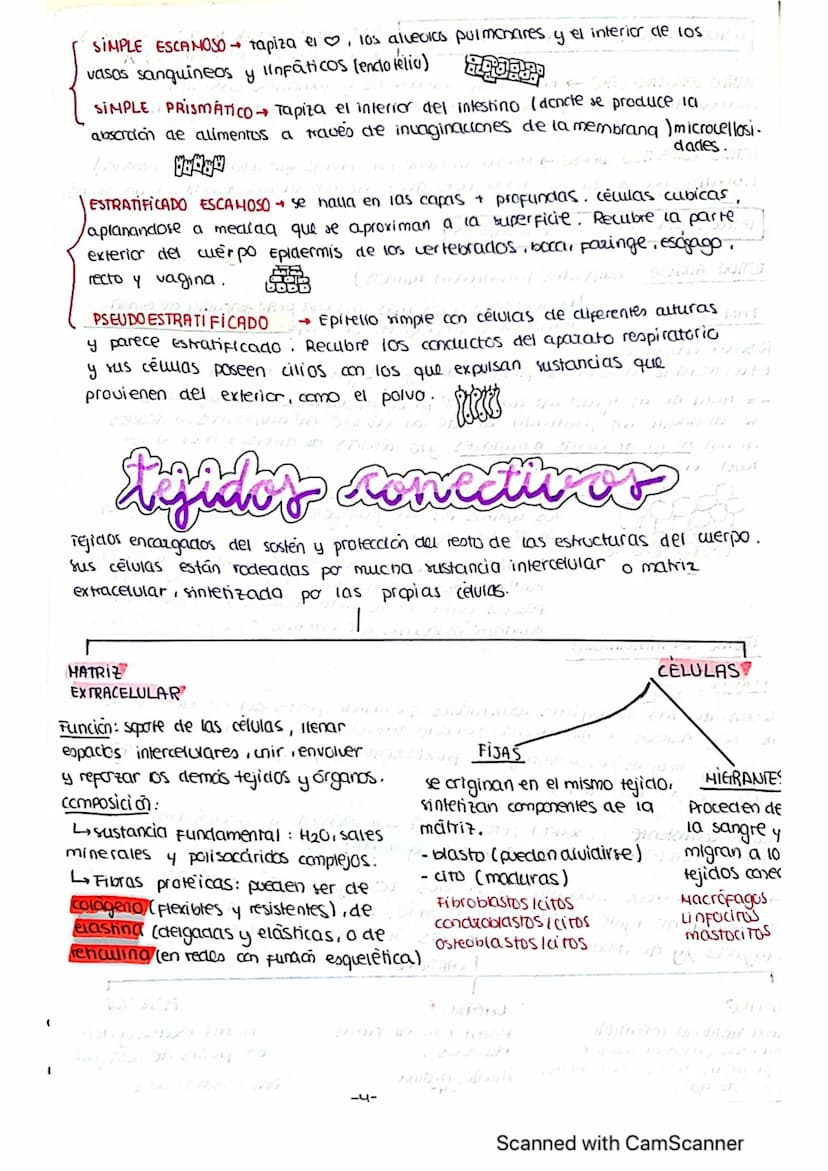 SIMPLE ESCAMOSO → Tapiza el ♡, los alveolos pulmonares y el interior de los
vasos sanguíneos y linfáticos (endotelio)
SIMPLE PRISMÁTICO → Tapiza el interior del intestino (donde se produce la
absorción de alimentos a través de invaginaciones de la membrana) microvellosi-
dades.
ESTRATIFICADO ESCAMOSO → se halla en las capas + profundas. células cubicas,
aplanandose a medida que se aproximan a la superficie. Recubre la parte
exterior del cuerpo Epidermis de los vertebrados, boca, faringe, esófago,
recto y vagina.
PSEUDOESTRATIFICADO → Epitelio simple con células de diferentes alturas
y parece estratificado. Recubre los conductos del aparato respiratorio
y sus células poseen cilios con los que expulsan sustancias que
provienen del exterior, como el polvo.
tejidos conectivos
Tejidos encargados del sostén y protección del resto de las estructuras del cuerpo.
sus células están rodeadas por mucha sustancia intercelular o matriz
extracelular, sintetizada por las propias células.
MATRIZ
EXTRACELULAR
Función: soporte de las células, llenar
espacios intercelulares, unir, envolver
y reforzar los demás tejidos y órganos.
composición:
↳ sustancia Fundamental: H2O, sales
minerales y polisacáridos complejos.
↳ Fibras protéicas: pueden ser de
colágeno (flexibles y resistentes), de
elastina (delgadas y elásticas, o de
reticulina (en redes con función esquelética)
CÉLULAS
FIJAS
se originan en el mismo tejido,
sintetizan componentes de la
mátriz.
- blasto (pueden dividirse)
- cito (maduras)
Fibroblastos/citos
condroblastos/citos
osteoblastos/citos
MIGRANTES
Proceden de
la sangre y
migran a lo
tejidos conec
Macrófagos
Linfocitos
mastocitos
-4-
Scanned with CamScanner